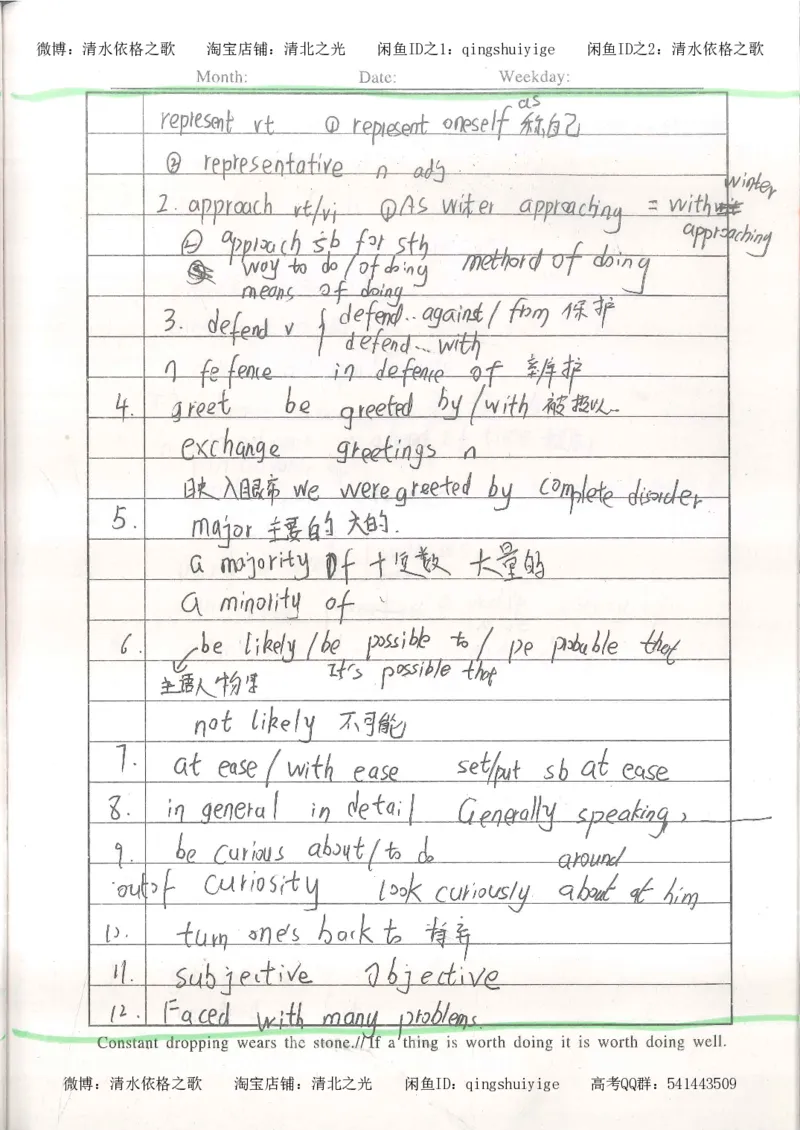 微博：清水依格之歌 淘宝店铺：清北之光 闲鱼ID之1：qingshuiyige 闲鱼ID之2：清水依格之歌
Month: Date: Weekday:
represent vt ① represent oneself as 称自己
② representative n adj
2. approach vt/vi ① As witer approaching = with winter approaching
② approach sb for sth
way to do / of doing methord of doing
means of doing
3. defend v { defend.. against / from 保护
defend... with
n fefence in defence of 辩护
4. greet be greeted by / with 被报以..
exchange greetings n
映入眼帘 we were greeted by complete disorder
5. major 主要的 大的.
a majority of 大量的
a minority of
6. be likely / be possible to / pe probable that
主语人物 It's possible that
not likely 不可能
7. at ease / with ease set/put sb at ease
8. in general in detail Generally speaking,
9. be curious about / to do around
out of curiosity look curiously about at him
10. turn one's back to 背弃
11. subjective objective
12. Faced with many problems.
Constant dropping wears the stone.// If a thing is worth doing it is worth doing well.
微博：清水依格之歌 淘宝店铺：清北之光 闲鱼ID：qingshuiyige 高考QQ群：541443509